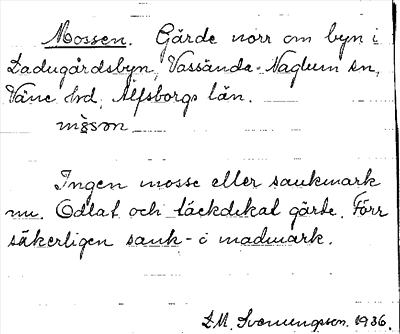 Mossen. Gärde norr om byn i
Ladugårdsbyn, Vassända-Naglum sn,
Väne hd, Älfsborgs län.
måsən
Ingen mosse eller sankmark
nu. Odlat och täckdikat gärde. Förr
säkerligen sank- o madmark.
D.M. 1936.